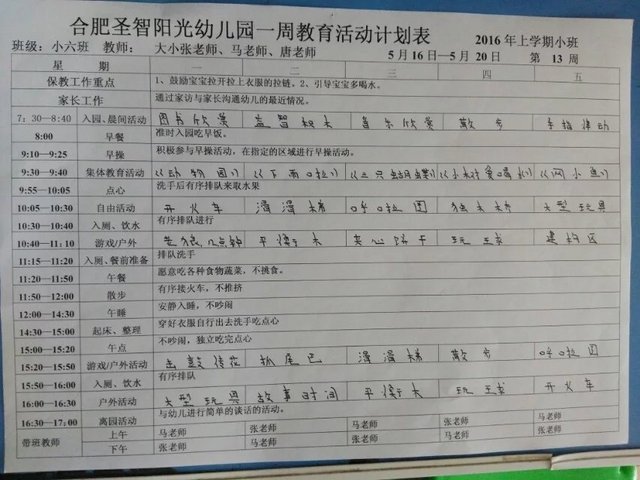 合肥圣智阳光幼儿园一周教育活动计划表
2016 年上学期小班
班级：小六班 教师： 大小张老师、马老师、唐老师 5 月 16 日—5 月 20 日 第 13 周
星 期 一 二 三 四 五
保教工作重点 1、鼓励宝宝拉开拉上衣服的拉链，2、引导宝宝多喝水。
家长工作 通过家访与家长沟通幼儿的最近情况。
7：30—8:40 入园、晨间活动 图书欣赏 益智积木 音乐欣赏 散步 手指律动
8:00 早餐 准时入园吃早饭。
9:10—9:25 早操 积极参与早操活动，在指定的区域进行早操活动。
9:30—9:40 集体教育活动 《动物园》 《下雨啦》 《三只蝴蝶》 《小鱼》
9:55—10:05 点心 洗手后有序排队来取水果
10:05—10:30 自由活动 开火车 滑滑梯 呼啦圈 独木桥 大型玩具
10:30—10:40 入厕、饮水 有序排队进行
10:40—11:10 游戏/户外 老狼几点钟 平衡木 夹心饼干 玩 建构区
11:15—11:20 入厕、餐前准备 排队洗手
11:20—11:50 午餐 愿意吃各种食物蔬菜，不挑食。
11:50—12:00 散步 有序接火车，不推挤
12:00—14:30 午睡 安静入睡，不吵闹
14:30—15:00 起床、整理 穿好衣服自行出去洗手吃点心
15:00—15:20 午点 不吵闹，独立吃完点心
15:20—15:50 游戏/户外活动 击鼓传花 抓尾巴 滑滑梯 散步 呼啦圈
15:50—16:00 入厕、饮水 有序排队
16:00—16:30 户外活动 大型玩具 故事时间 平衡木 玩 开火车
16:30—17:00 离园活动 与幼儿进行简单的谈话的活动。
带班教师 上午 马老师 张老师 马老师 张老师 马老师
下午 张老师 马老师 张老师 马老师 张老师